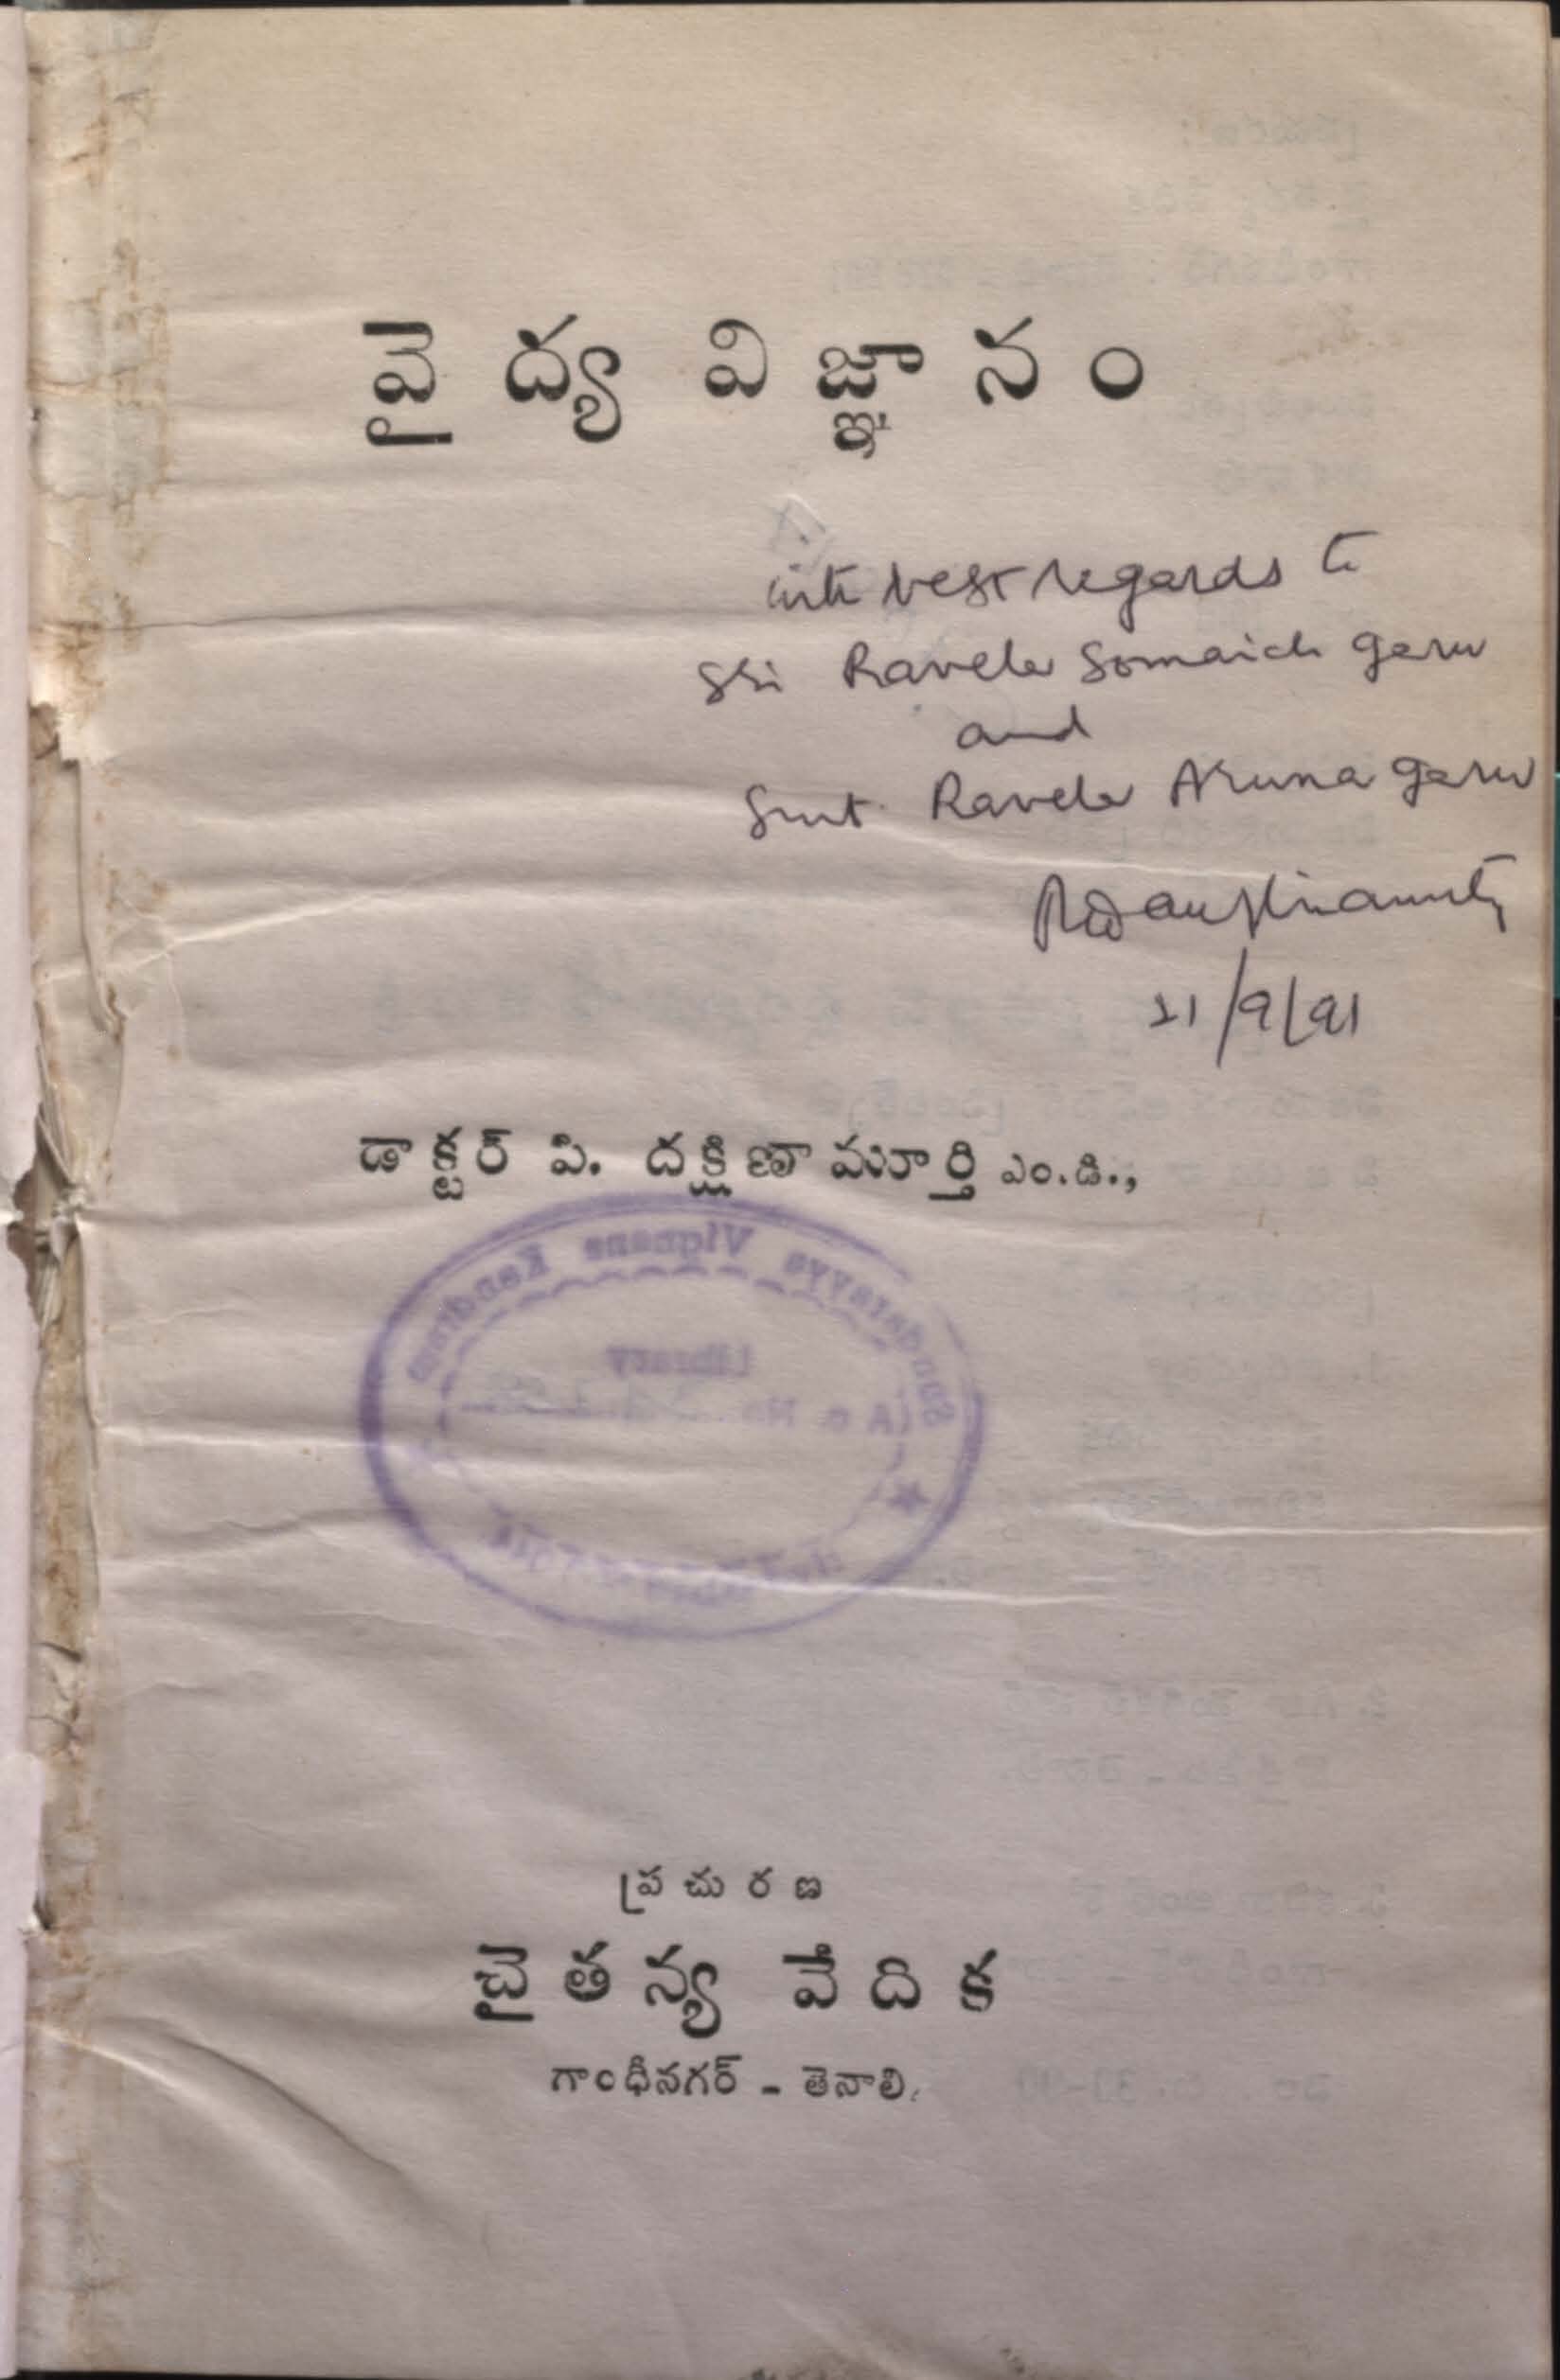 వైద్య విజ్ఞానం
with best regards to
Sri Ravela Somaiah garu
and
Smt. Ravela Aruna garu
21/9/91
డాక్టర్ పి. దక్షిణామూర్తి ఎం.డి.,
Sundarayya Vignana Kendram
Library
ప్రచురణ
చైతన్య వేదిక
గాంధీనగర్ - తెనాలి.